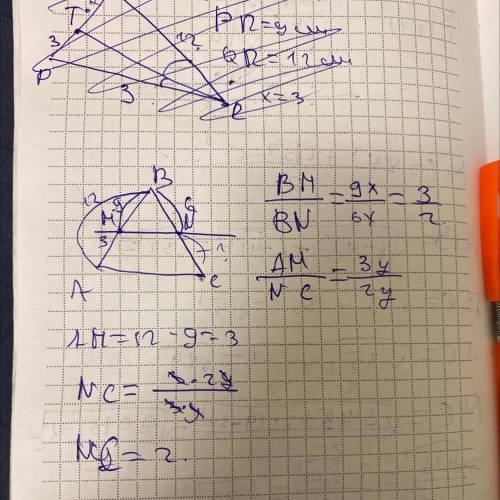 T
3
P
12
3
R
PR = 9 cm
QR = 12 cm
x = 3
B
12
9
M
N
3
?
A
C
BM/BN = 9x/6x = 3/2
AM/NC = 3y/2y
AM = 12 - 9 = 3
NC = 3·2y/3y
NC = 2.